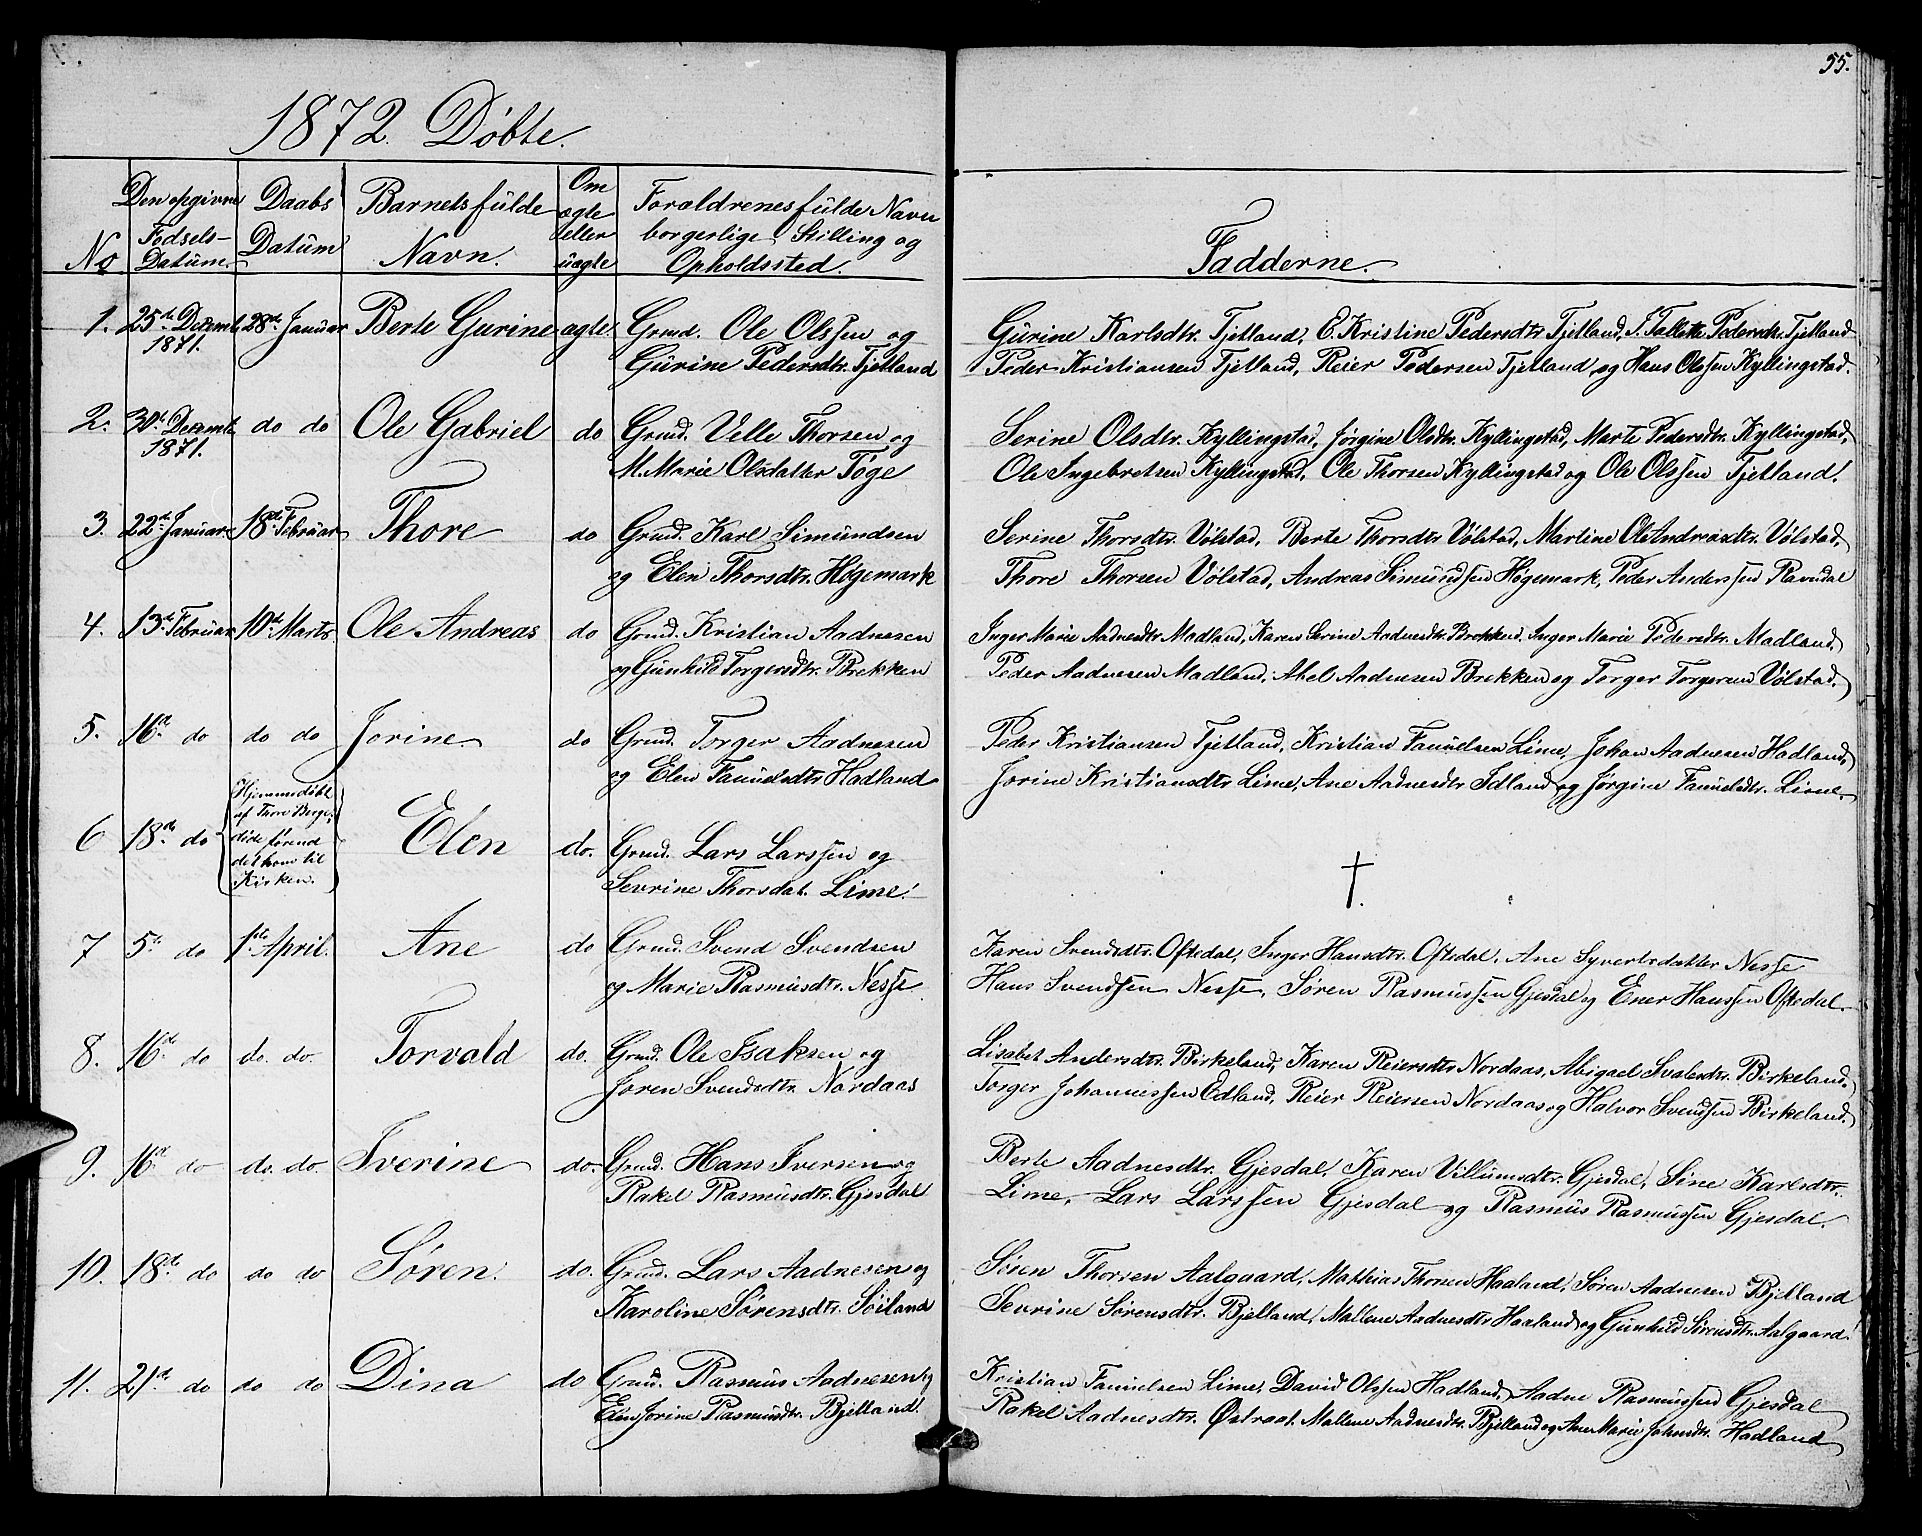 55.
1872. Döbte.
No
Den opgivne Fødsels-Datum.
Daabs Datum
Barnets fulde Navn.
Om ægte eller uægte
Forældrenes fulde Navn borgerlige Stilling og Opholdssted.
Fadderne.
1. 25de Decemb. 1871. 28de Januar Berte Gurine ægte Grmd. Ole Olssen og
Gurine Pedersdtr. Tjetland
Gurine Karlsdtr. Tjetland, E. Kristine Pedersdtr. Tjetland, T. Tallette Pedersdtr. Tjetland
Peder Kristiansen Tjetland, Reier Pedersen Tjetland og Hans Olssen Kyllingstad.
2. 30te Decemb. 1871. do do Ole Gabriel do Grmd. Velle Thorsen og
M. Marie Olsdatter Tøge
Serine Olsdtr. Kyllingstad, Jørgine Olsdtr. Kyllingstad, Marte Pedersdtr. Kyllingstad,
Ole Ingebretsen Kyllingstad, Ole Thorsen Kyllingstad og Ole Olssen Tjetland.
3. 22de Januar 18de Februar Thore do Grmd. Karl Simundsen
og Elen Thorsdtr. Høgemark
Serine Thorsdtr. Vølstad, Berte Thorsdtr. Vølstad, Martine Ole Andreasdtr. Vølstad,
Thore Thorsen Vølstad, Andreas Simundsen Høgemark, Peder Anderssen Ravndal
4. 13de Februar 10de Marts Ole Andreas do Grmd. Kristian Aadnesen
og Gunhild Torgersdtr. Brekken
Inger Marie Aadnesdtr. Madland, Karen Serine Aadnesdtr. Brekken. Inger Marie Pedersdtr. Madland,
Peder Aadnesen Madland, Abel Aadnesen Brekken og Torger Torgersen Vølstad.
5. 16de do do do Jorine do Grmd. Torger Aadnesen
og Elen Faurelsdtr. Hadland
Peder Kristiansen Tjetland, Kristian Faurelsen Lime, Johan Aadnesen Hadland,
Jorine Kristiansdtr. Lime, Ane Aadnesdtr. Idland og Jørgine Faurelsdtr. Lime.
6 18de do Hjemmedøbt af Thore Berge, døde førend det kom til Kirken. Elen do. Grmd. Lars Larssen og
Sevrine Thorsdat. Lime.
†.
7 5te do 1ste April. Ane do Grmd. Svend Svendsen
og Marie Rasmusdtr. Nesse
Karen Svendsdtr. Oftedal, Inger Hansdtr. Oftedal, Ane Syvertsdatter Nesse
Hans Svendssen Nesse, Søren Rasmussen Gjesdal og Ener Hanssen Oftedal.
8. 16de do do. do. Torvald do. Grmd. Ole Isaksen og
Joren Svendsdtr. Nordaas
Lisabet Andersdtr. Birkeland, Karen Reiersdtr. Nordaas, Abigael Svalesdtr. Birkeland,
Torger Johannessen Edland, Reier Reiersen Nordaas og Halvor Svendsen Birkeland.
9. 16de do do. do. Iverine do. Grmd. Hans Iversen og
Rakel Rasmusdtr. Gjesdal
Berte Aadnesdtr. Gjesdal, Karen Villumsdtr. Gjesdal, Sine Karlsdtr.
Lime, Lars Larssen Gjesdal og Rasmus Rasmussen Gjesdal.
10. 18de do do do Søren. do. Grmd. Lars Aadnesen og
Karoline Sørensdtr. Søiland
Søren Thorsen Aalgaard, Mathias Thorsen Haaland, Søren Aadnesen Bjelland
Sevrine Sørensdtr. Bjelland, Mallene Aadnesdtr. Haaland og Gunhild Sørensdtr. Aalgaard.
11. 21de do do do Dina do Grmd. Rasmus Aadnesen og
Elen Jorine Rasmusdtr. Bjelland.
Kristian Faurelsen Lime, David Olssen Hadland, Aadne Rasmussen Gjesdal
Rakel Aadnesdtr. Østraat, Mallene Aadnesdtr. Bjelland og Ane Marie Johnsdtr. Hadland